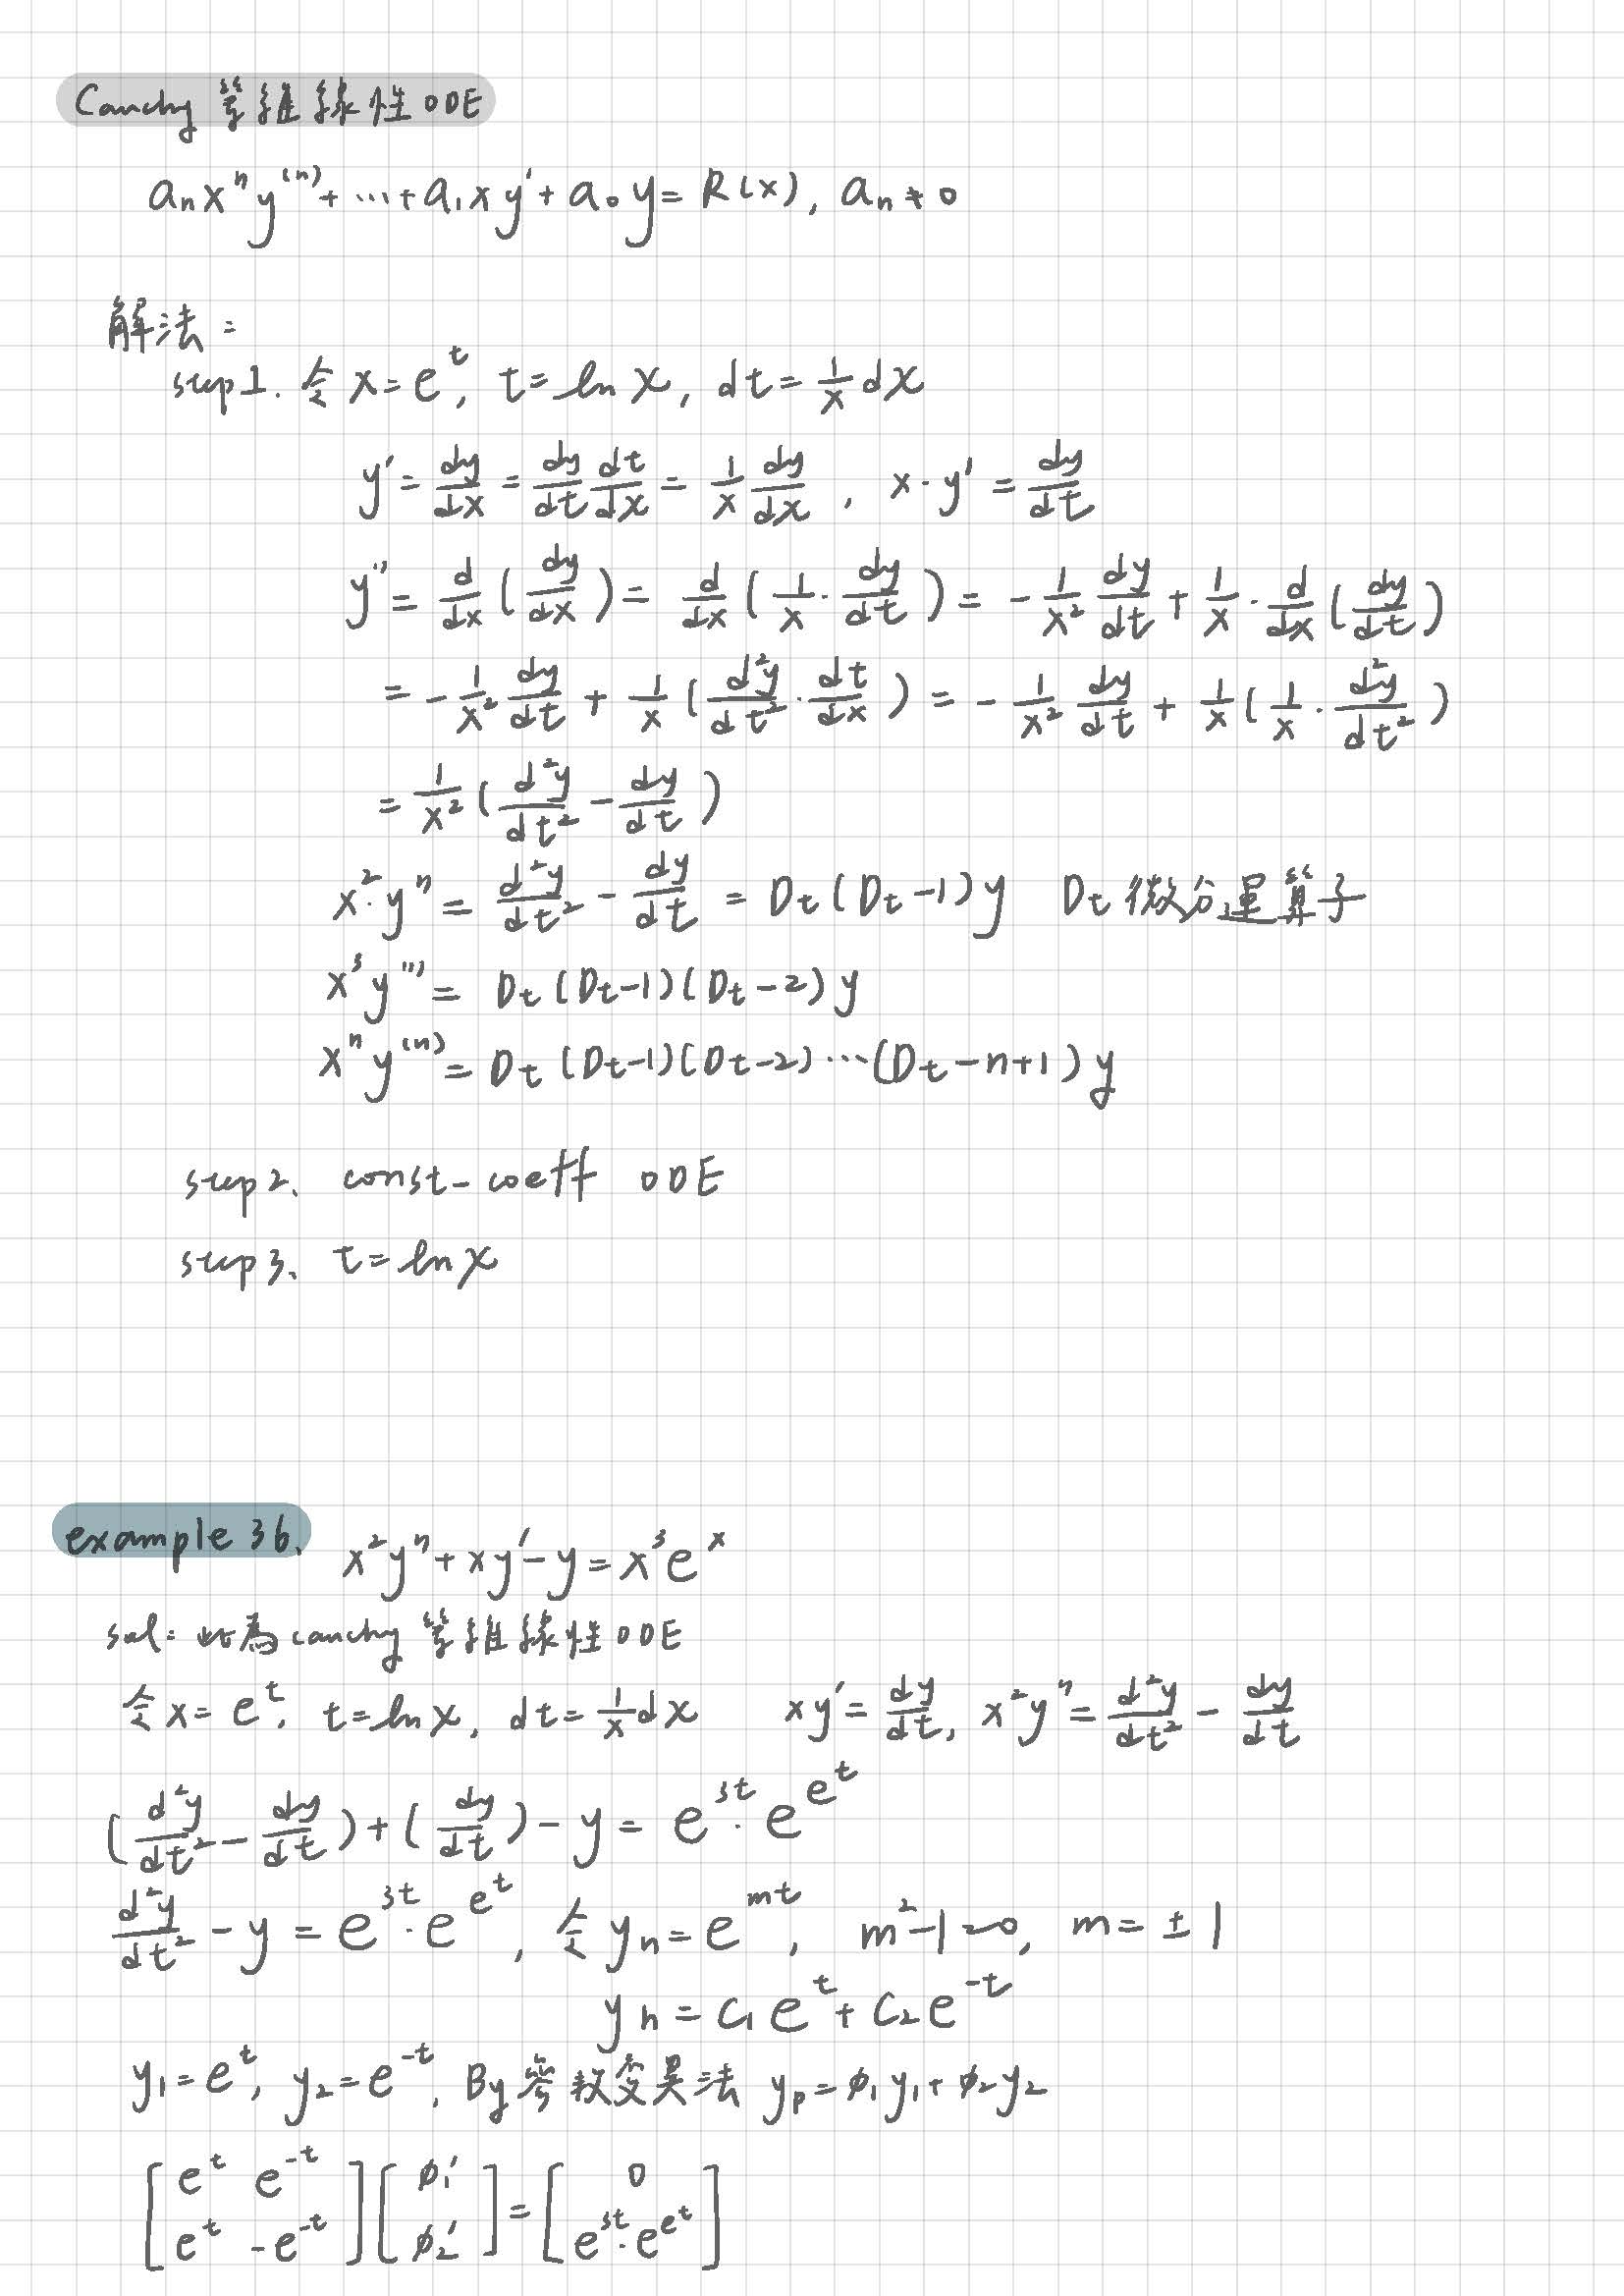 Cauchy 等維線性 ODE
aₙxⁿy⁽ⁿ⁾+⋯+a₁xy′+a₀y=R(x), aₙ≠0
解法:
step1. 令 x=e^t, t=ln x, dt=1/x dx
y′=dy/dx=dy/dt dt/dx=1/x dy/dx, x·y′=dy/dt
y″=d/dx(dy/dx)=d/dx(1/x·dy/dt)=-1/x² dy/dt+1/x·d/dx(dy/dt)
=-1/x² dy/dt+1/x(d²y/dt²·dt/dx)=-1/x² dy/dt+1/x(1/x·d²y/dt²)
=1/x²(d²y/dt²-dy/dt)
x²·y″=d²y/dt²-dy/dt=Dt(Dt-1)y Dt 微分運算子
x³y‴=Dt(Dt-1)(Dt-2)y
xⁿy⁽ⁿ⁾=Dt(Dt-1)(Dt-2)⋯(Dt-n+1)y
step2、const-coeff ODE
step3、t=ln x
example 36、x²y″+xy′-y=x³e^x
sol: 此為 cauchy 等維線性 ODE
令 x=e^t, t=ln x, dt=1/x dx xy′=dy/dt, x²y″=d²y/dt²-dy/dt
(d²y/dt²-dy/dt)+(dy/dt)-y=e^{3t}·e^{e^t}
d²y/dt²-y=e^{3t}·e^{e^t}, 令 yh=e^{mt}, m²-1=0, m=±1
yh=C₁e^t+C₂e^{-t}
y₁=e^t, y₂=e^{-t}, By 參數變異法 yp=ϕ₁y₁+ϕ₂y₂
[e^t e^{-t}; e^t -e^{-t}][ϕ₁′; ϕ₂′]=[0; e^{3t}·e^{e^t}]